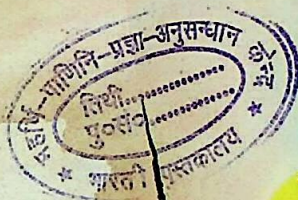 महर्षि-पाणिनि-प्रज्ञा-अनुसन्धान केन्द्र
तिथी....................
पु०सं०....................
★ भारती पुस्तकालय ★